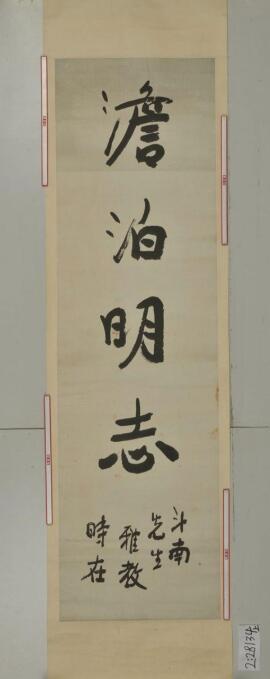 澹泊明志
斗南
先生
雅教
時在
2:28134